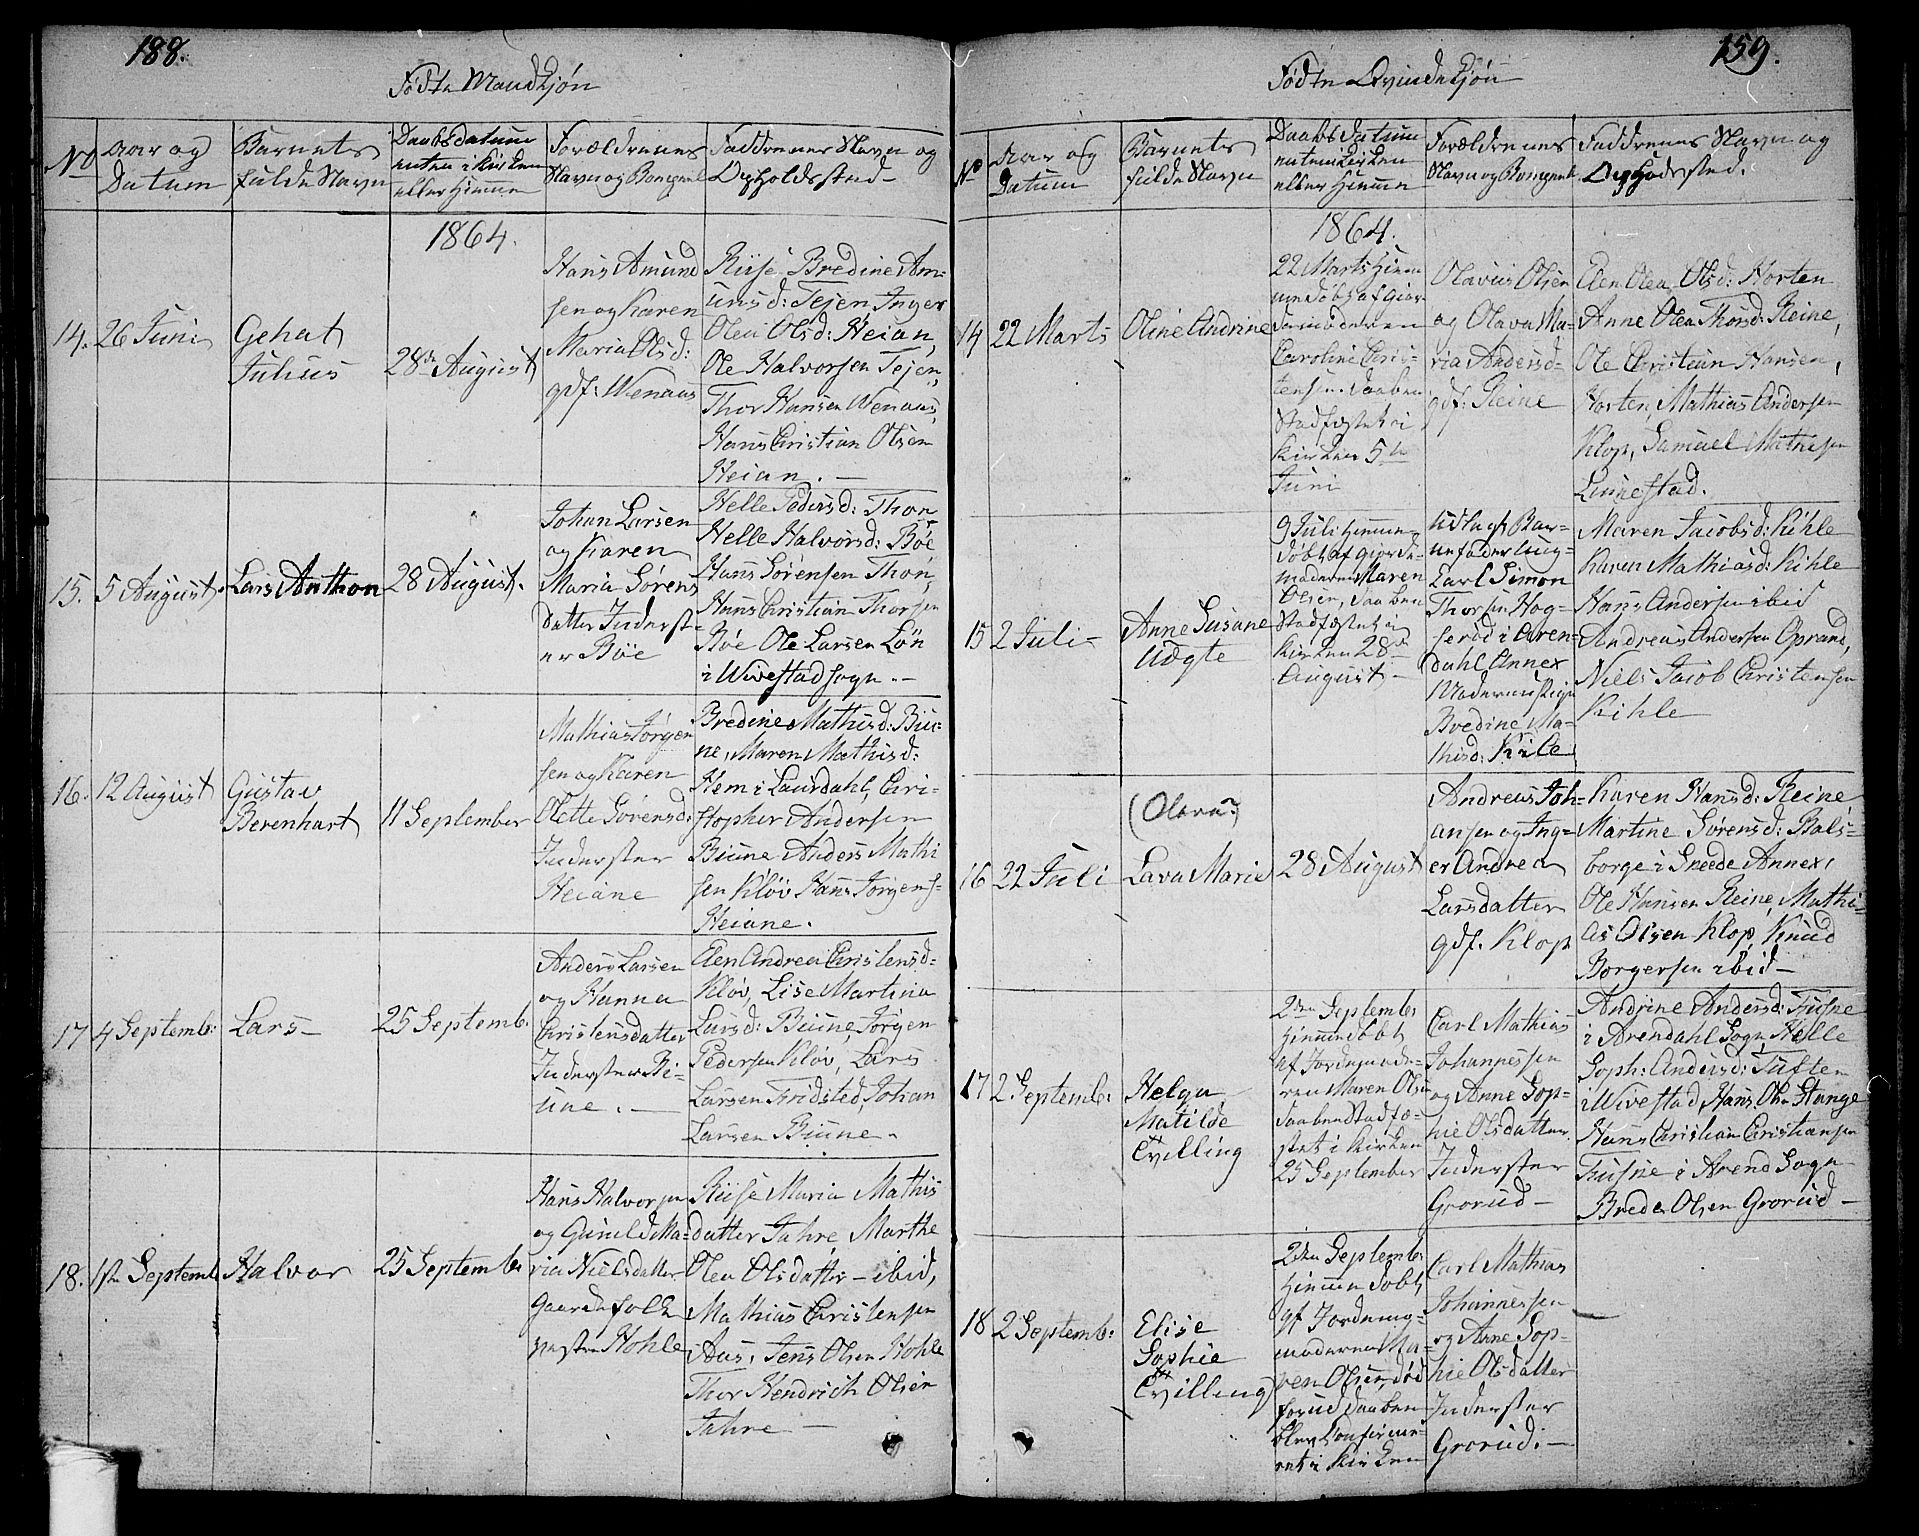 188.
Födte Mandkjön
No
Aar og
Datum
Barnets
fulde Navn
Daabsdatum
enten i Kirken
eller Hiemme
Forældrenes
Navn og
Faddrenes Navn og
Opholdssted
1864.
14.
26 Juni
Gehat
Julius
28de August
Hans Amund
sen og Karen
Maria Olsd:
gdf: Wenaas
Riise Bredine Am-
unsd: Tejen Inger
Olea Olsd: Heian,
Ole Halvorsen Tejen,
Thor Hansen Wenaas,
Hans Christian Olsen
Heian. —
15.
5 August
Lars Anthon
28 August.
Johan Larsen
og Karen
Maria Sörens
datter Inderst-
er Böe
Helle Pedersd: Thon,
Helle Halvorsd: Böe
Hans Sörensen Thon,
Hans Christian Thorsen
Böe Ole Larsen Lön
i Wivestad sogn. —
16.
12 August
Gustav
Berenhart
11 September
Mathias Jörgen
sen og Karen
Olette Sörensd:
Inderster
Heiane
Bredine Mathisd: Biu-
ne, Maren Mathisd:
Hem i Laurdahl, Chri-
stopher Andersen
Biune Anders Mathi
sen Klöv Hans Jörgens-
Heiane.
17
4 Septemb:
Lars —
25 Septemb:
Anders Larsen
og Hanna
Christensdatter
Inderster Bi-
une. —
Elen Andrea Christensd-
Klöv, Lise Martina
Larsd: Biune, Jörgen
Pedersen Klöv, Lars
Larsen Fridsted, Johan
Larsen Biune.
18.
1ste Septemb
Halvor
25 Septemb:
Hans Halvorsen
og Gunild Ma-
ria Nielsdatter
Gaardfolk
Hohle
Riise Maria Mathis
datter Jahre Marthe
Olea Olsdatter — ibid,
Mathias Christensen
Aas, Jens Olsen Hohle
Thor Hendrich Olsen
Jahre —
159.
Födte Qvindekjön
No
Aar og
Datum
Barnets
fulde Navn
Daabsdatum
enten Kirken
eller Hiemme
Forældrenes
Navn og
Faddrenes Navn og
Opholdssted.
1864.
14
22 Marts
Oline Andrine
22 Marts Hiem
me döbt af Gior-
demoderen
Caroline Chris-
tensen. Daaben
Stadfæstet i
Kirken 5te
Juni
Olavus Olsen
og Olava Ma-
ria Andersd-
gdf: Reine
Elen Olea Olsd: Horten
Anne Olea Thorsd: Reine,
Ole Christian Hansen,
Horten, Mathias Andersen
Klop, Samuel Mathisen
Linnestad.
15
2 Juli —
Anne Susane
Uægte
9 Juli Hiemme-
döbt af Giorde-
moderen Maren
Olsen, Daaben
Stadfæstet i
Kirken 28de
August —
Udlagt Bar-
nefader Ung-
Carl Simon
Thorsen Hog-
serod i Aren-
dahl Annex
Moderen Pige
Bredine Ma-
thisd: Kile
Maren Jacobsd: Kihle
Karen Mathiasd: Kihle
Hans Andersen ibid
Andreas Andersen Oprand,
Niels Jacob Christensen
Kihle
16
22 Juli
(Olava)
Lava Marie
28 August
Andreas Joh-
ansen og Ing-
er Andrea
Larsdatter
gdf. Klop
Karen Hansd: Reine,
Martine Sörensd: Bals-
borge i Snede Annex,
Ole Hansen Reine, Mathi-
as Olsen Klop, Knud
Borgersen ibid —
17
2 Septemb:
Helga
Matilde
Tvilling
2den Septemb:
Hiemmedöbt
af Jordemode-
ren Maren Olsen
Daaben Stadfæ-
stet i Kirken
25 September
Carl Mathias
Johannessen
og Anne Sop-
hie Olsdatter
Inderster
Grorud —
Andrine Andersd: Fusne
i Arendahl Sogn, Helle
Soph: Andersd: Tuften
i Wivestad Hans Olsen Stange
Hans Christian Christiansen
Fusne i Arend Sogn
Brede Olsen Grorud —
18
2 Septemb:
Elise
Sophie
Tvilling
2den Septemb:
Hiemmedöbt,
af Jordemoderen Ma-
ren Olsen, död
forud Daaben
blev Confirme-
ret i Kirken
Carl Mathias
Johannessen
og Anne Sop-
hie Olsdatter
Inderster
Grorud. —